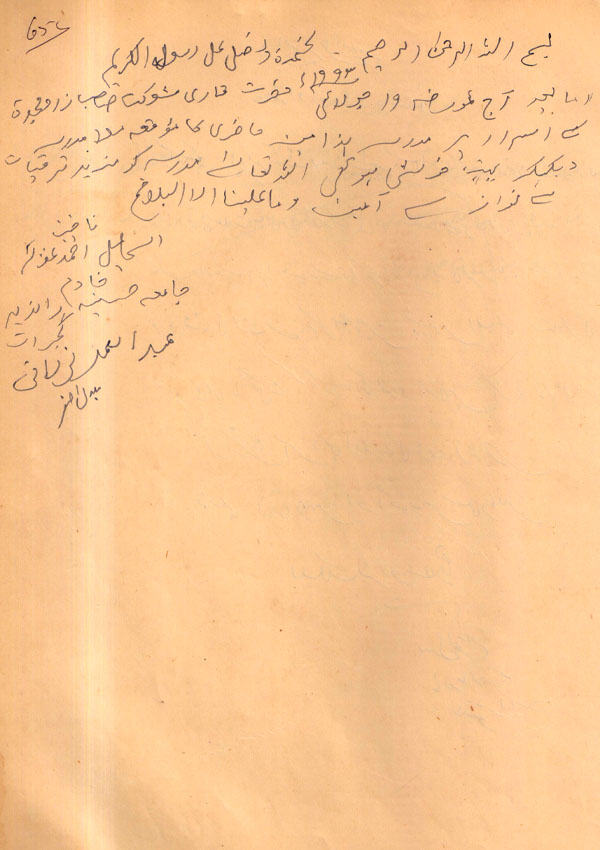 بسم اللہ الرحمن الرحیم نحمدہ و نصلی علی رسولہ الکریم
اما بعد آج مورخہ ۱۹ جولائی ۱۹۹۳ء حضرت قاری شوکت صاحب زاد مجدہ
کے اسرار پر مدرسہ ہذا میں حاضری کا موقعہ ملا مدرسہ
دیکھکر بہت خوشی ہوئی اللہ تعالیٰ مدرسہ کو مزید ترقیات
سے نوازے آمین وما علینا الا البلاغ
اسماعیل احمد
خادم
جامعہ حسینیہ راندیر
گجرات